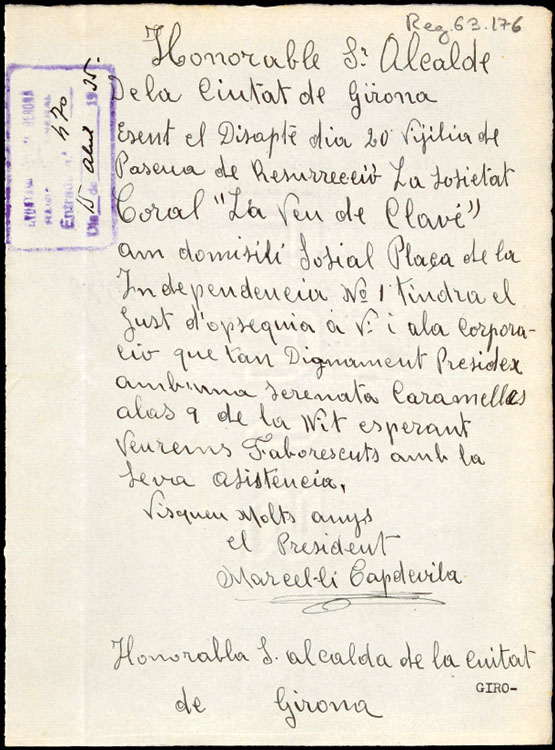 Reg. 63.176
Honorable Sr Alcalde
De la Ciutat de Girona
Esent el Disapte dia 20 Vijilia de
Pascua de Resurrecció La Sosietat
Coral "La Veu de Clavé"
am domisili Sosial Plaça de la
Independencia No 1 tindra el
Gust d'opsequia à V. i ala Corpora-
ció que tan Dignament Presidex
amb'una Serenata Caramelles
alas 9 de la Nit esperant
Veurems Faborescuts amb la
Seva Asistencia,
Visqueu Molts anys
el President
Marcel·li Capdevila
Honorabla S. alcalda de la Cuitat
GIRO-
de Girona
Entrada n.º 470
Dia 15 de Abril 1935.